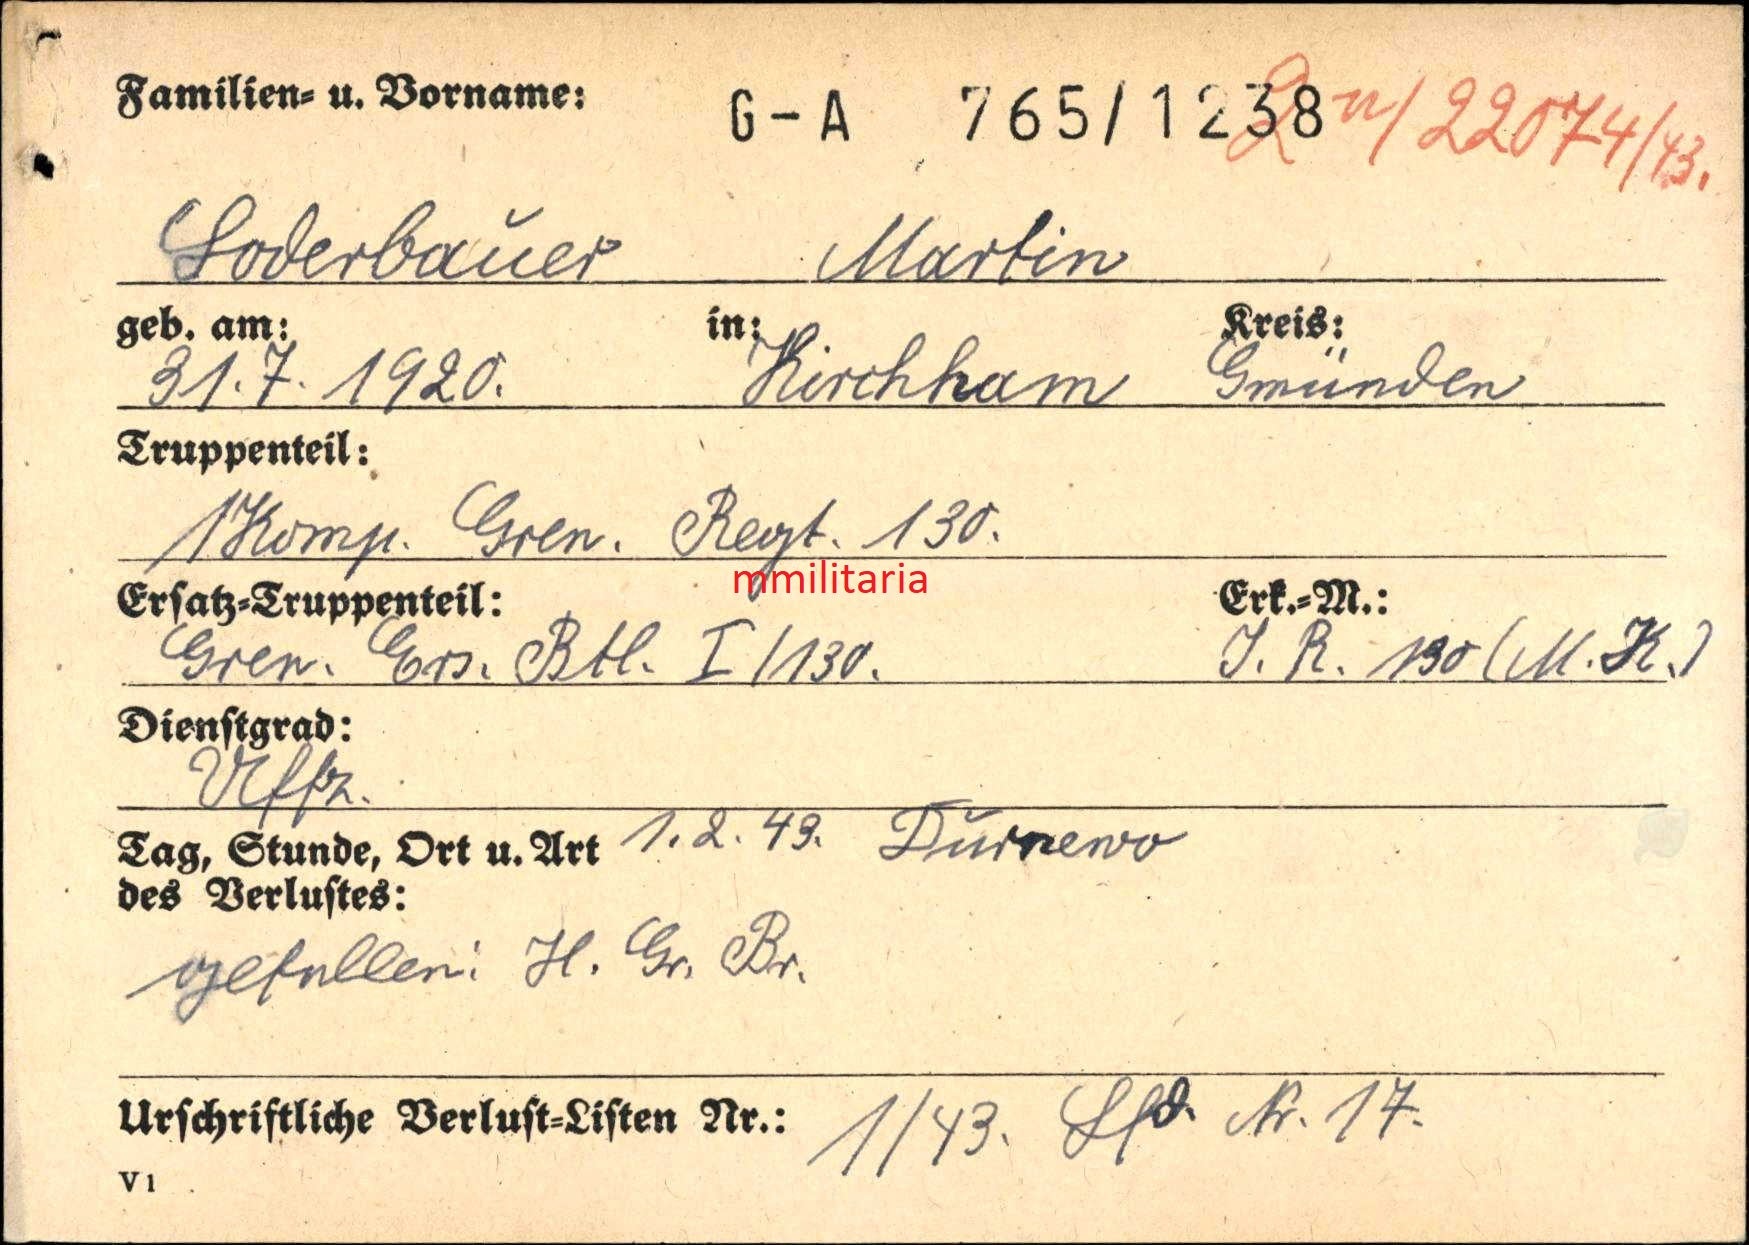 Familien- u. Vorname:
G-A 765/1238
22074/43.
Loderbauer Martin
geb. am: in: Kreis:
31.7.1920. Kirchham Gmünden
Truppenteil:
1 Komp. Gren. Regt. 130.
mmilitaria
Ersatz-Truppenteil: Erk.-M.:
Gren. Ers. Btl. I/130. I. R. 130 (M. K.)
Dienstgrad:
Uffz.
Tag, Stunde, Ort u. Art 1.2.43. Durnewo
des Verlustes:
gefallen: H. Gr. Br.
Urschriftliche Verlust-Listen Nr.: 1/43. Lfd. Nr. 17.
V 1